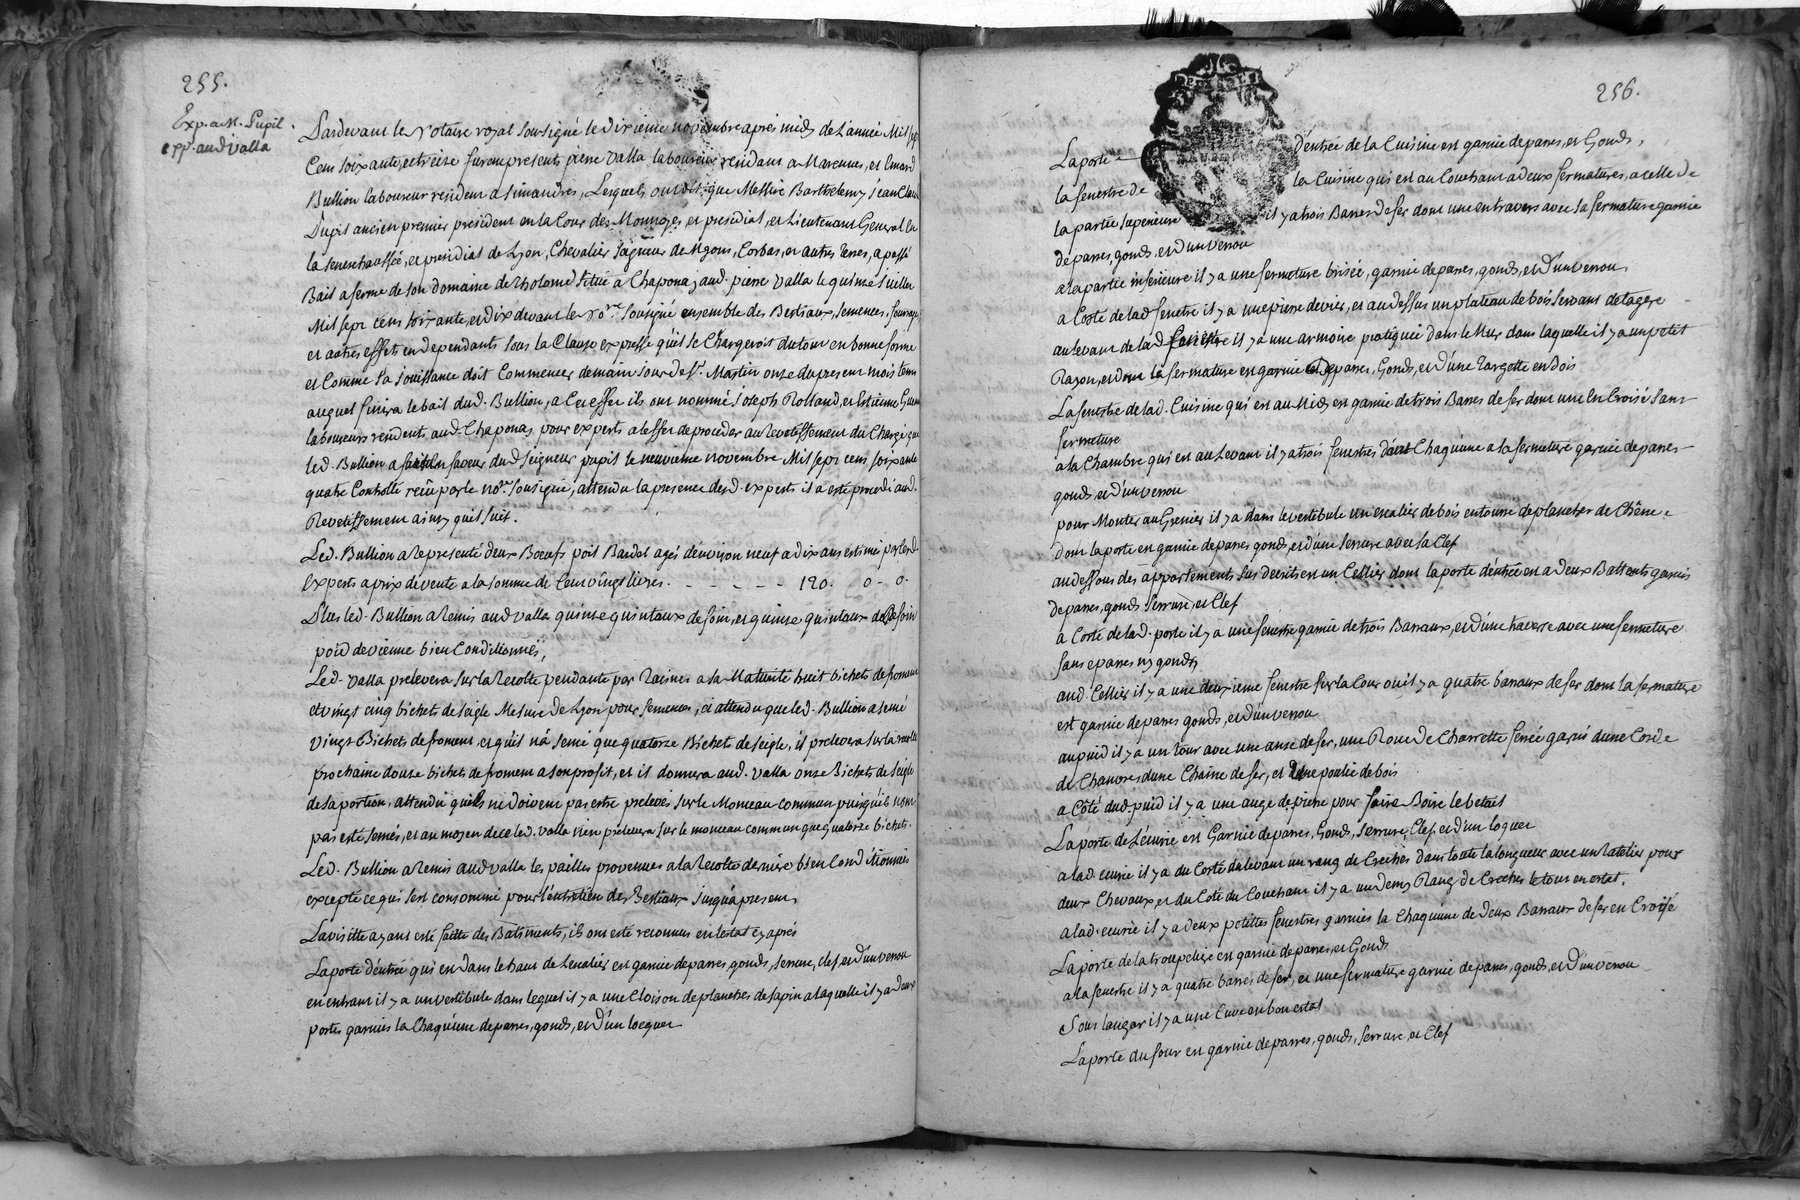 255.
Exp. a M. Pupil.
epp. aud Valla
Pardevant le Notaire royal soussigné le dixieme novembre après midy de L'année Mil sept
Cens soixante et treize furent presents pierre Valla laboureur residant a Marennes, et Emard
Bullion laboureur residant a simandres, Lesquels ont dit que Messire Barthelemy jean Claude
Pupil ancien premier president en la Cour des Monnoyes, et presidial, et Lieutenant General en
la senechaussée, et presidial de Lyon, Chevalier seigneur de Myons, Corbas, et autres terres, a passé
Bail a ferme de son domaine de situé a Chaponay aud. pierre Valla le quinze juillet
Mil sept cens soixante, et dix devant le No.re soussigné ensemble des Bestiaux, semences, fourrage
et autres effets en dependants sous la Clause expresse qu'il se Chargeroit du tout en bonne forme
et Comme sa jouissance doit Commencer demain jour de s.t Martin onze du present mois tems
auquel finira le bail dud. Bullion, a Cet effet ils ont nommé joseph Rolland, et Estienne
laboureurs residents aud. Chaponay pour experts a l'effet de proceder au Revetissement du Chargé que
led. Bullion a fait en faveur dud seigneur pupil le neuvieme novembre Mil sept cens soixante
quatre Controllé reçu par le no.re soussigné, attendu la presence desd. experts il a esté procedé aud.
Revetissement ainsy quil suit.
Led. Bullion a representé deux Bœufs poil Bardel agés d'environ neuf a dix ans estimés par lesd.
experts a prix de vente a la somme de Cent vingt livres. - - - - - 120. 0 - 0.
Plus led. Bullion a Remis aud valla quinze quintaux de foin, et quinze quintaux de Refoin
poid de vienne bien Conditionnés,
Led. valla prelevera sur la Recolte pendante par Racines a la Maturité huit bichets de froment
et vingt cinq bichet de seigle Mesure de Lyon pour semences, et attendu que led. Bullion a semé
vingt Bichets de froment, et qu'il n'a semé que quatorze Bichet de seigle, il prelevera sur la recolte
prochaine douze bichets de froment a son profit, et il donnera aud. valla onze Bichets de seigle
de sa portion, attendu qu'ils ne doivent pas estre prelevés sur le Monceau commun puisqu'ils n'ont
pas esté semés, et au moyen de ce led. valla n'en prelevera sur le monceau commun que quatorze bichets.
Led. Bullion a Remis aud valla les pailles provenues a la Recolte derniere bien Conditionnées
excepté ce qui s'est consommé pour l'entretien des Bestiaux jusqu'a present,
La visitte ayant esté faitte des Batiments, ils ont esté reconnus en l'estat cy après
La porte d'entrée qui en dans le haut de Lescalier est garnie de parres, gonds, serrure, clef, et d'un verrou
en entrant il y a un vestibule dans lequel il y a une Cloison de planches de sapin a laquelle il y a deux
portes garnies la Chaquune de parres, gonds, et d'un locquet
256.
La porte d'entrée de la Cuisine est garnie de parres, et Gonds,
la fenestre de la Cuisine qui est au Couchant a deux fermatures, a celle de
la partie superieure il y a trois Barres de fer dont une en travers avec sa fermature garnie
de parres, gonds, et d'un verrou
a la partie inferieure il y a une fermature brisée, garnie de parres, gonds, et d'un verrou
a Costé de lad fenetre il y a une pierre devier, et au dessus un plateau de bois servant detagere
au levant de lad. fenestre il y a une armoire pratiquée dans le Mur dans laquelle il y a un petit
Rayon, et dont la fermature est garnie de parres, Gonds, et d'une targette en Bois
La fenestre de lad. Cuisine qui est au Midy est garnie de trois Barres de fer dont une en Croisé sans
fermature
a la Chambre qui est au Levant il y a trois fenestres dont Chaquune a la fermature garnie de parres
gonds, et d'un verrou
pour Monter au Grenier il y a dans le vestibule un escalier de bois entouré de plancher de Chêne
dont la porte est garnie de parres gonds, et d'une serrure avec sa Clef
au dessous des appartements sus decrits est un Cellier dont la porte d'entrée est a deux Battants garnis
de parres, gonds serrure, et Clef
a Costé de lad. porte il y a une fenestre garnie de trois Barraux, et d'une traverse avec une fermature
sans eparres ny gonds
aud. Cellier il y a une deuxieme fenestre sur la Cour ou il y a quatre barraux de fer dont la fermature
est garnie de parres gonds, et d'un verrou
au puid il y a un tour avec une anse de fer, une Roue de Charrette ferrée garni dune Corde
de Chanvre, dune Chaine de fer, et d'une poulie de bois
a Côté dud. puid il y a une auge de pierre pour faire Boire le betail
La porte de L'écurie est Garnie de parres, Gonds, serrure, Clef et d'un loquet
a lad. ecurie il y a du Costé du levant un rang de Creches dans toute la longueur avec un Ratelier pour
deux Chevaux, et du Coté du Couchant il y a un demy Rang de Creches le tout en estat.
a lad. ecurie il y a deux petittes fenestres garnies la Chaquune de deux Barraux de fer en Croisé
La porte de la troupeliere est garnie de parres, et Gonds
a la fenestre il y a quatre barres de fer, et une fermature garnie de parres, gonds, et d'un verrou
Sous langar il y a une Cuve en bon estat
La porte du four est garnie de parres, gonds, serrure, et Clef